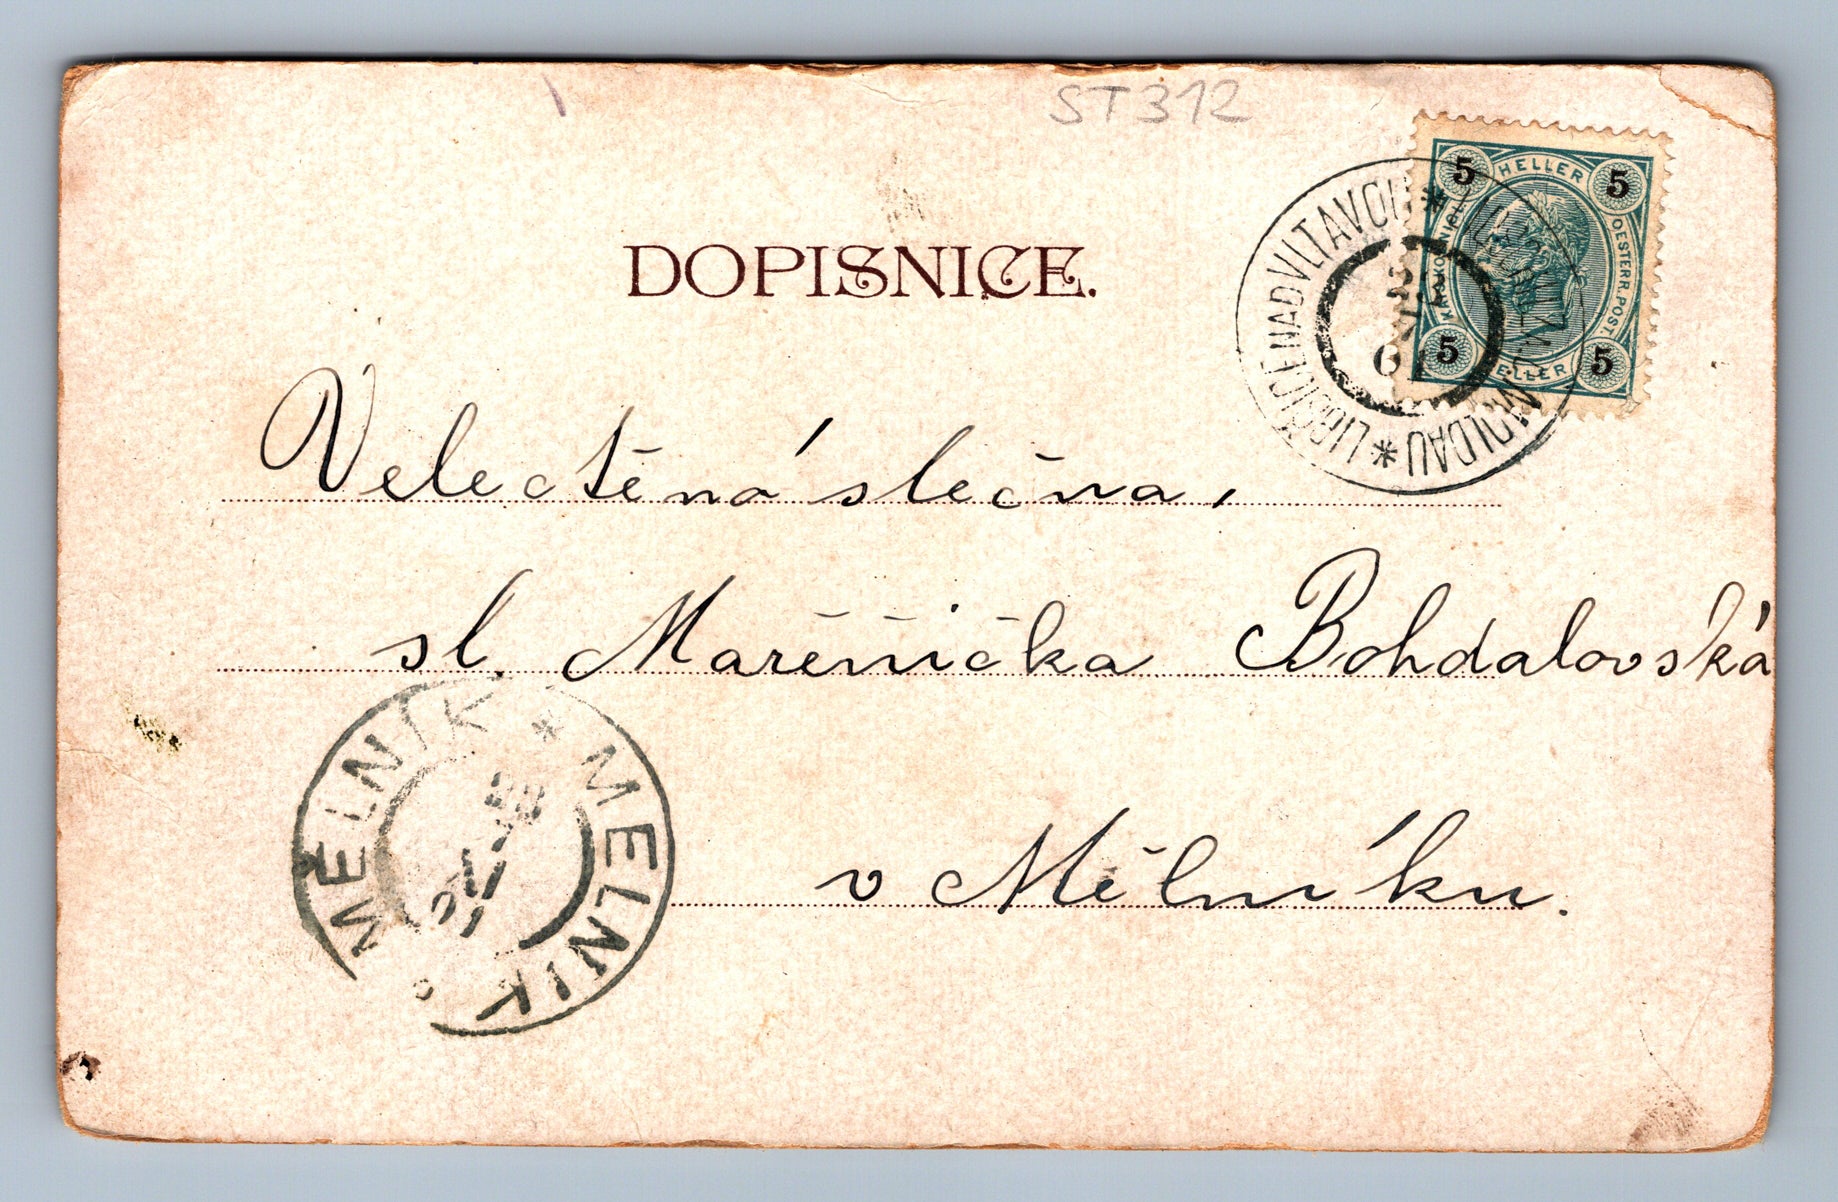 ST312
DOPISNICE.
5 HELLER 5
OESTERR.POST.
5 HELLER 5
MOLDAU * LIBŠICE NAD VLTAVOU *
Velectěná slečna,
sl. Mařenička Bohdalovská
v Mělníku.
MĚLNÍK * MELNIK